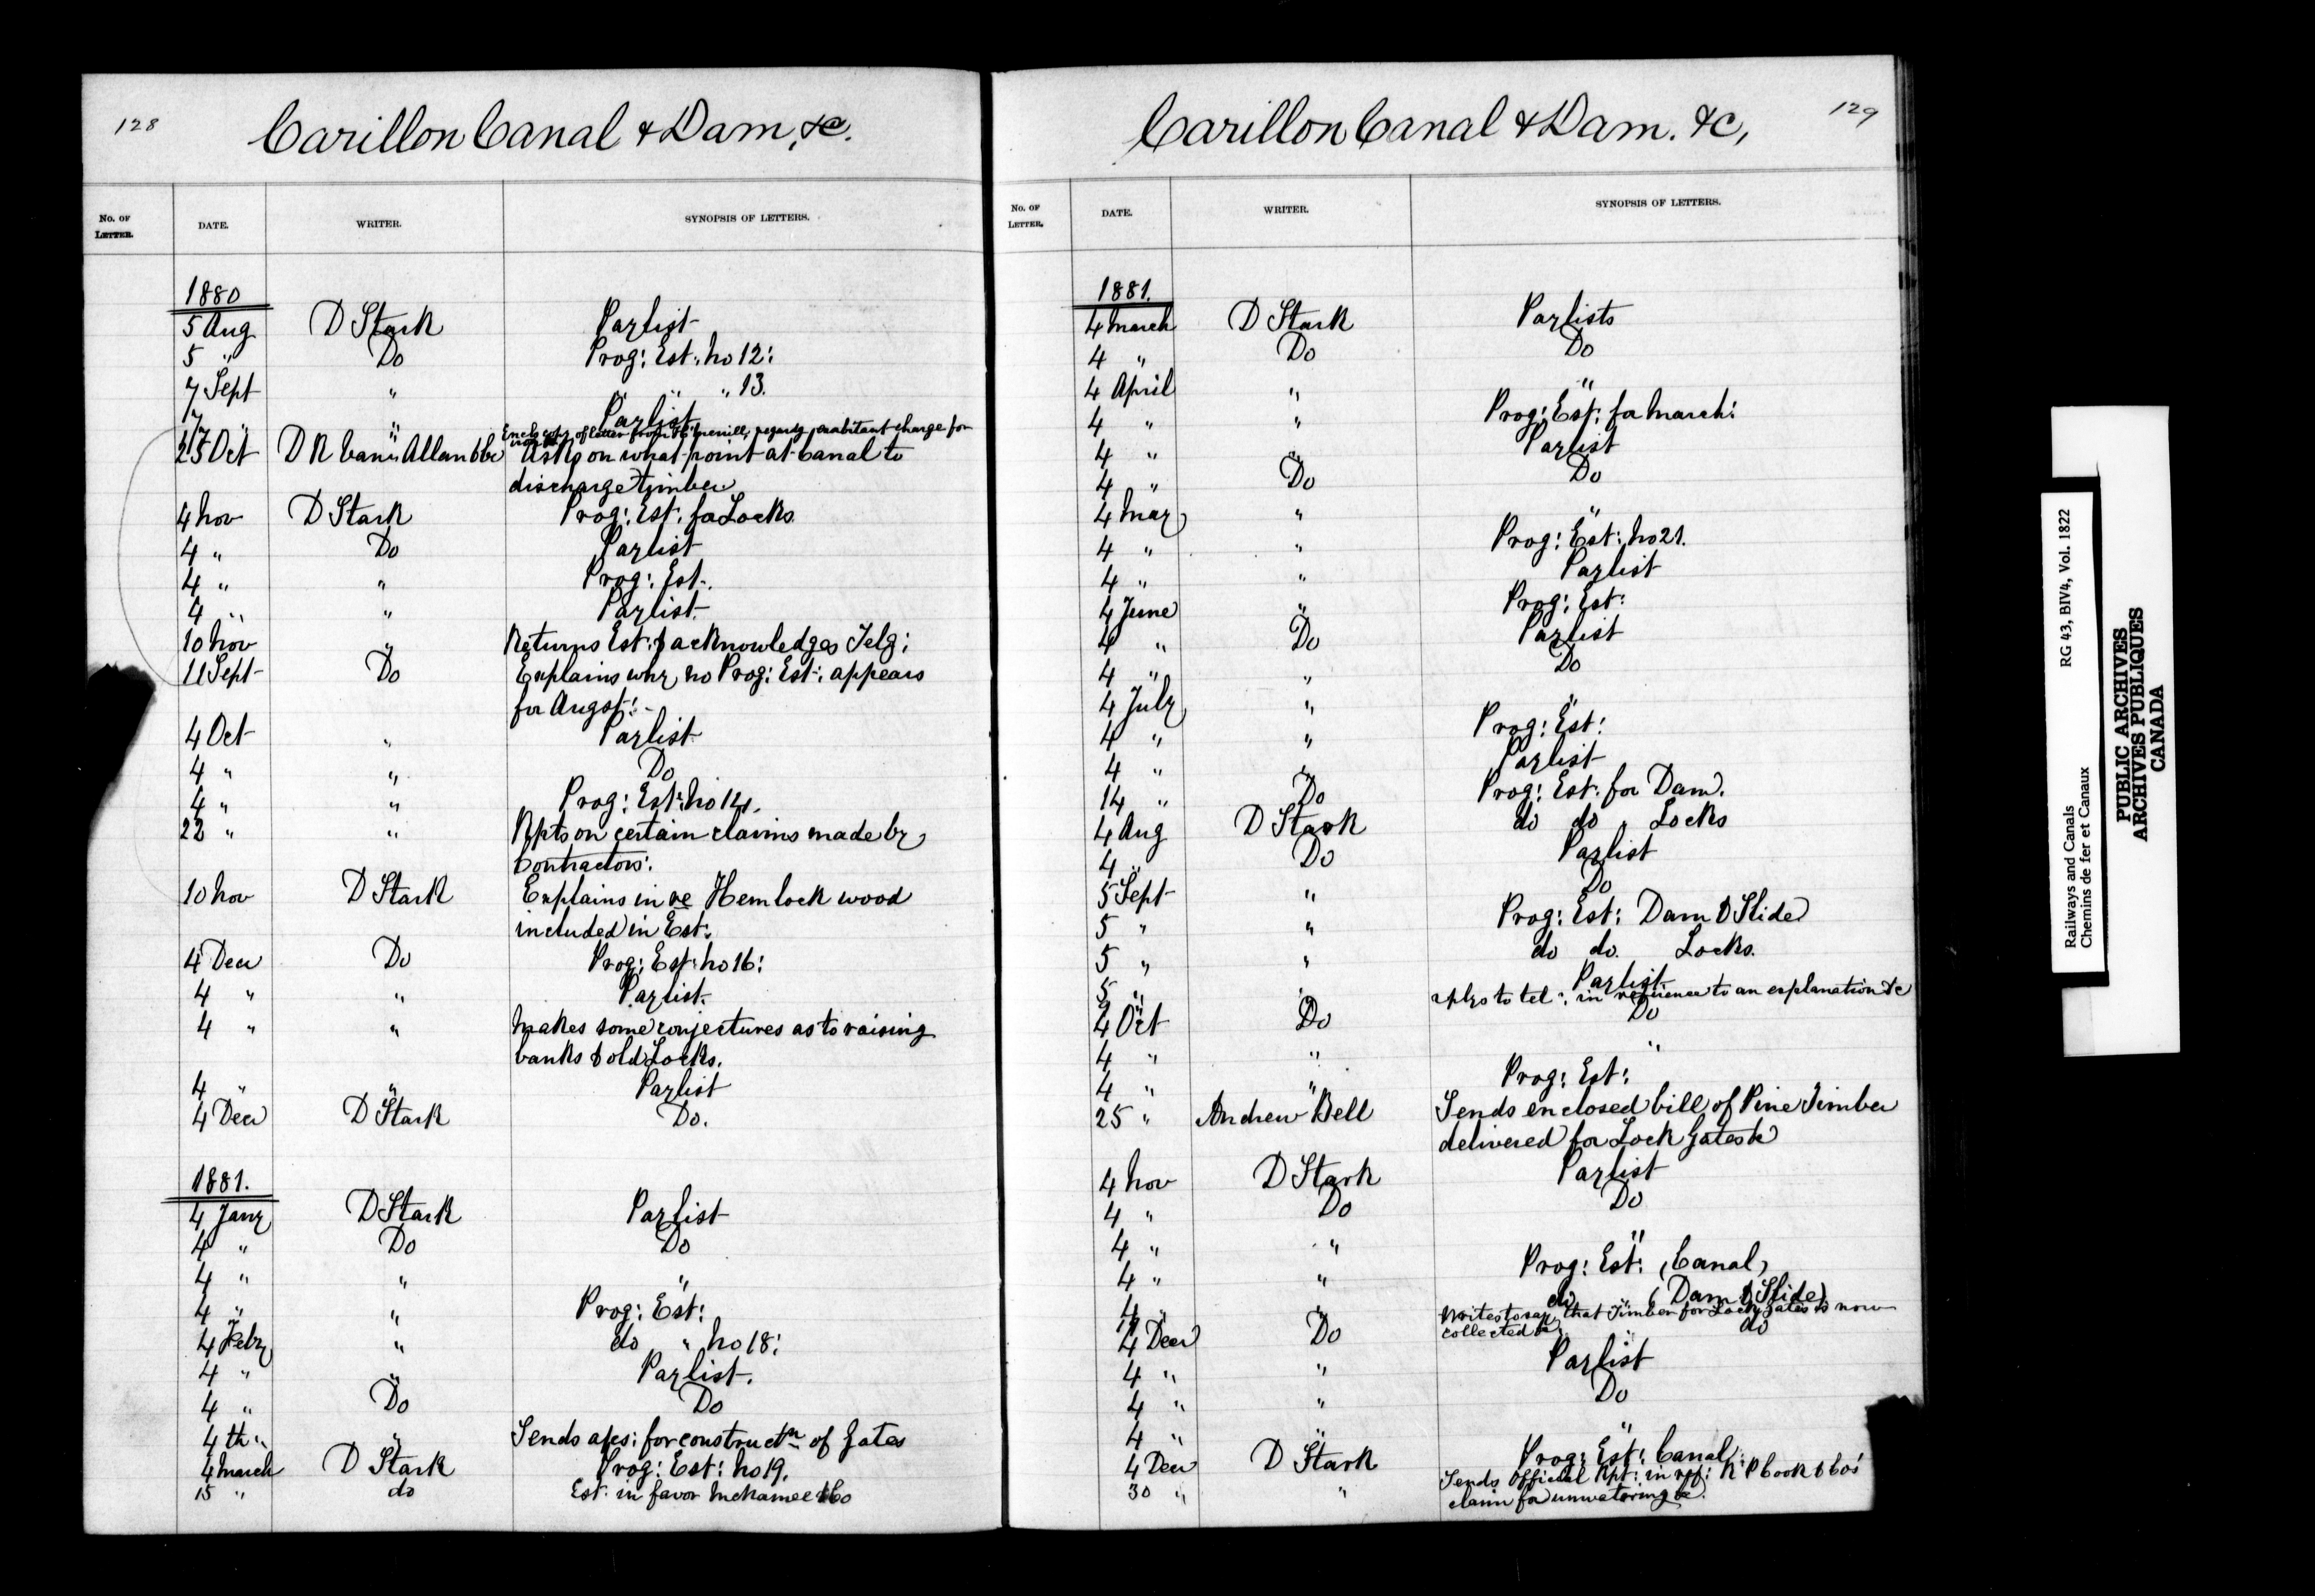 128
Carillon Canal & Dam, &c.
No. OF LETTER.
DATE.
WRITER.
SYNOPSIS OF LETTERS.
1880
5 Aug D Stark Paylist
5 " Do Prog: Est: no 12:
7 Sept " " " " 13.
7 " " Paylist
17 " Encls copy of letter from merrill, regardg exorbitant charge for
25 Oct D R Van Allan & Co Asks on what point at Canal to
discharge timber
4 Nov D Stark Prog: Est: for Locks
4 " Do Paylist
4 " " Prog: Est.
4 " " Paylist.
10 Nov " Returns Est: & acknowledges Telg:
11 Sept Do Explains why no Prog: Est: appears
for Augst:
4 Oct " Paylist
4 " " Do
4 " " Prog: Est: No 14.
22 " " Rpts on certain claims made by
Contractors:
10 Nov D Stark Explains in re Hemlock wood
included in Est:
4 Decr Do Prog: Est: no 16:
4 " " Paylist.
4 " " Makes some conjectures as to raising
banks & old Locks.
4 " " Paylist
4 Decr D Stark Do.
1881.
4 Jany D Stark Paylist
4 " Do Do
4 " " "
4 " " Prog: Est:
4 Feby " do " no 18:
4 " " Paylist.
4 " Do Do
4th " " Sends aps: for constructn of Gates
4 March D Stark Prog: Est: No 19.
15 " do Est. in favor McNamee & Co
129
Carillon Canal & Dam. &c,
No. OF LETTER.
DATE.
WRITER.
SYNOPSIS OF LETTERS.
1881.
4 March D Stark Paylists
4 " Do Do
4 April " "
4 " " Prog: Est: for March:
4 " " Paylist
4 " Do Do
4 May " "
4 " " Prog: Est: No 21.
4 " " Paylist
4 June " Prog: Est:
4 " Do Paylist
4 " " Do
4 July " "
4 " " Prog: Est:
4 " " Paylist
14 " Do Prog: Est. for Dam.
4 Aug D Stark do do " Locks
4 " Do Paylist
5 Sept " Do
5 " " Prog: Est: Dam & Slide
5 " " do do. Locks.
5 " " Paylist
rplys to tel: in reference to an explanation &c
4 Oct Do Do
4 " " "
4 " " Prog: Est:
25 " Andrew Bell Sends enclosed bill of Pine Timber
delivered for Lock Gates &c
4 Nov D Stark Paylist
4 " Do Do
4 " " "
4 " " Prog: Est: (Canal)
4 " " do " (Dam & Slide)
17 " Writes to say that Timber for Lock Gates is now
collected &c
4 Decr Do do
4 " " Paylist
4 " " Do
4 " " "
4 Decr D Stark Prog: Est: Canal:
30 " " Sends Official Rpt: in ref: R P Cook & Co's
claim for unwatering &c.
RG 43, BIV4, Vol. 1822
Railways and Canals
Chemins de fer et Canaux
PUBLIC ARCHIVES
ARCHIVES PUBLIQUES
CANADA